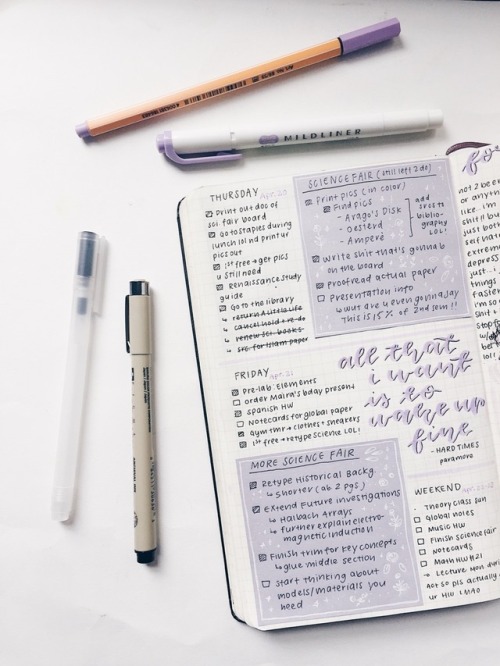 MILDLINER
THURSDAY Apr. 20
Print out doc of
sci fair board
Go to staples during
lunch lol nd print ur
pics out
1st free → get pics
u still need
Renaissance study
guide
Go to the library
↳ return A Little Life
↳ cancel hold + re-do
↳ renew sci. books
↳ src. for Islam paper
SCIENCE FAIR (still left 2 do)
Print pics (in color)
Find pics
- Arago's Disk
- Oesterd
- Ampere
add
srcs to
biblio-
graphy
LOL!
Write shit that's gonna b
on the board
Proofread actual paper
Presentation info
↳ wut are u even gonna say
this is 15% of 2nd sem!!
FRIDAY Apr. 21
Pre-lab: Elements
order Maira's bday present
Spanish HW
Notecards for global paper
gym tmr → clothes + sneakers
1st free → retype science LOL!
all that
i want
is to
wake up
fine
- HARD TIMES
paramore
MORE SCIENCE FAIR
Retype Historical Backg.
↳ shorter (ab 2 pgs.)
Extend Future investigations
↳ Halbach Arrays
↳ further explain electro-
magnetic induction
Finish trim for key concepts
↳ glue middle section
Start thinking about
models/materials you
need
WEEKEND
Theory class Sun
Global notes
Music HW
Finish science fair
Notecards
Math HW #21